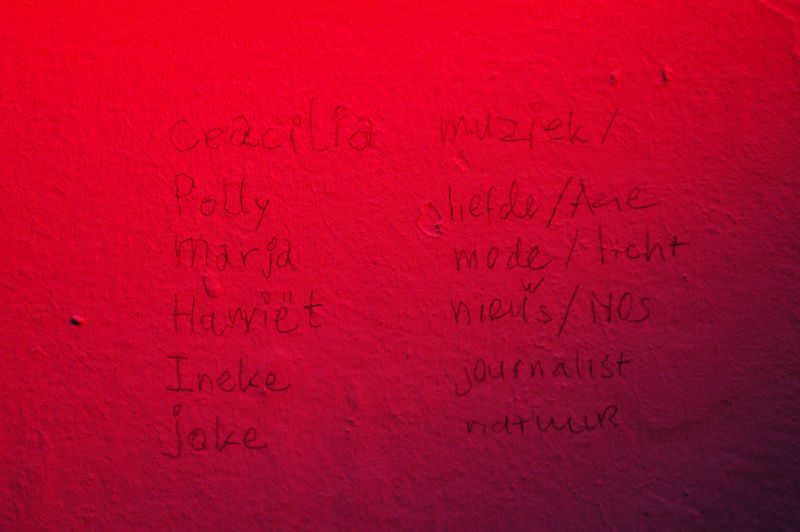 Ceacilia muziek/
Polly liefde/Azie
Marja mode/licht
Harriët nieuws/NOS
Ineke journalist
joke natuur